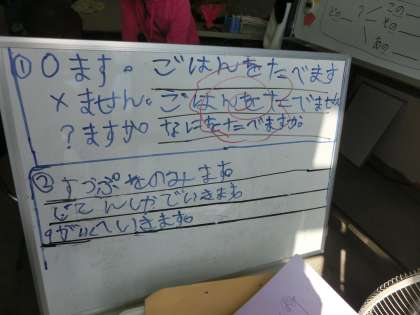 ① ○ ます。 ごはんをたべます
× ません。 ごはんをたべません
? ますか。 なにをたべますか
② すっぷをのみます。
じてんしゃでいきます
がっこへいきます。
この
その
あの